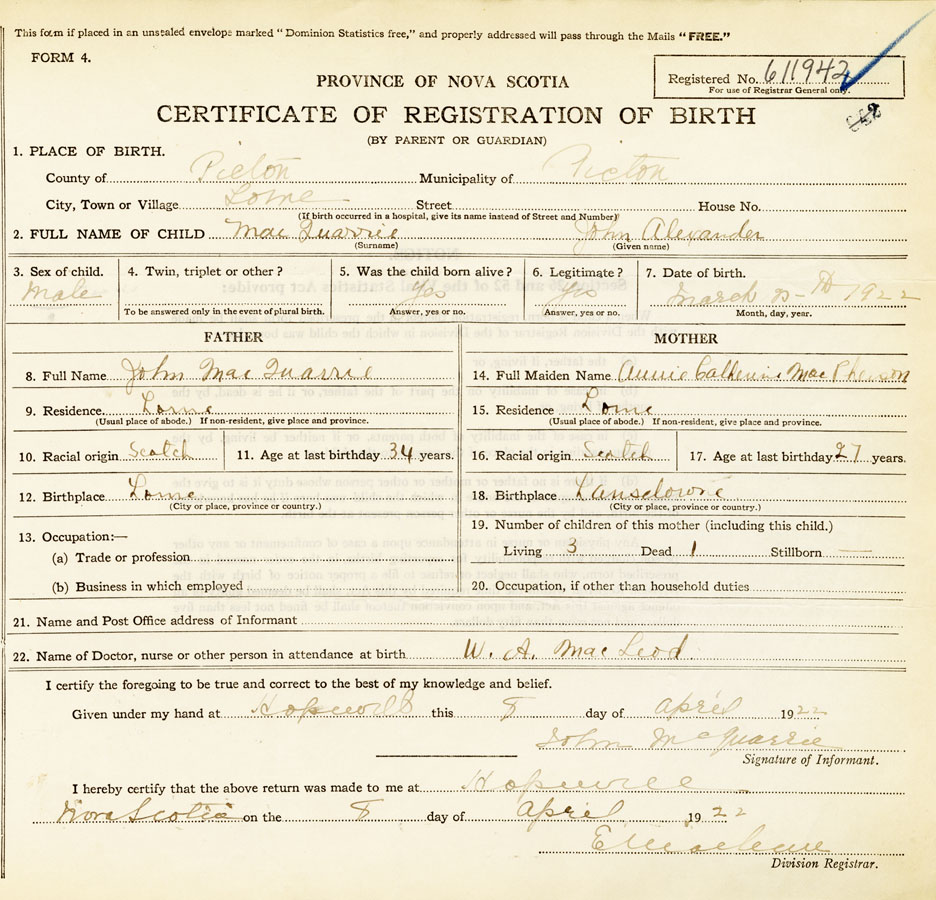 This form if placed in an unsealed envelope marked "Dominion Statistics free," and properly addressed will pass through the Mails "FREE."
FORM 4.
Registered No. 611942
For use of Registrar General only.
PROVINCE OF NOVA SCOTIA
CERTIFICATE OF REGISTRATION OF BIRTH
(BY PARENT OR GUARDIAN)
1. PLACE OF BIRTH.
County of Pictou Municipality of Pictou
City, Town or Village Lorne Street House No.
(If birth occurred in a hospital, give its name instead of Street and Number)
2. FULL NAME OF CHILD MacQuarrie John Alexander
(Surname) (Given name)
3. Sex of child. 4. Twin, triplet or other? 5. Was the child born alive? 6. Legitimate? 7. Date of birth.
Male Yes Yes March 1922
To be answered only in the event of plural birth. Answer, yes or no. Answer, yes or no. Month, day, year.
FATHER MOTHER
8. Full Name John MacQuarrie 14. Full Maiden Name Annie Catherine MacPherson
9. Residence Lorne 15. Residence Lorne
(Usual place of abode.) If non-resident, give place and province. (Usual place of abode.) If non-resident, give place and province.
10. Racial origin Scotch 11. Age at last birthday 34 years. 16. Racial origin Scotch 17. Age at last birthday 27 years.
12. Birthplace Lorne 18. Birthplace Lansdowne
(City or place, province or country.) (City or place, province or country.)
13. Occupation:— 19. Number of children of this mother (including this child.)
(a) Trade or profession Living 3 Dead 1 Stillborn —
(b) Business in which employed 20. Occupation, if other than household duties
21. Name and Post Office address of Informant
22. Name of Doctor, nurse or other person in attendance at birth W. A. MacLeod
I certify the foregoing to be true and correct to the best of my knowledge and belief.
Given under my hand at Hopewell this 8 day of April 1922
John McQuarrie
Signature of Informant.
I hereby certify that the above return was made to me at Hopewell
Nova Scotia on the 8 day of April 1922
Division Registrar.